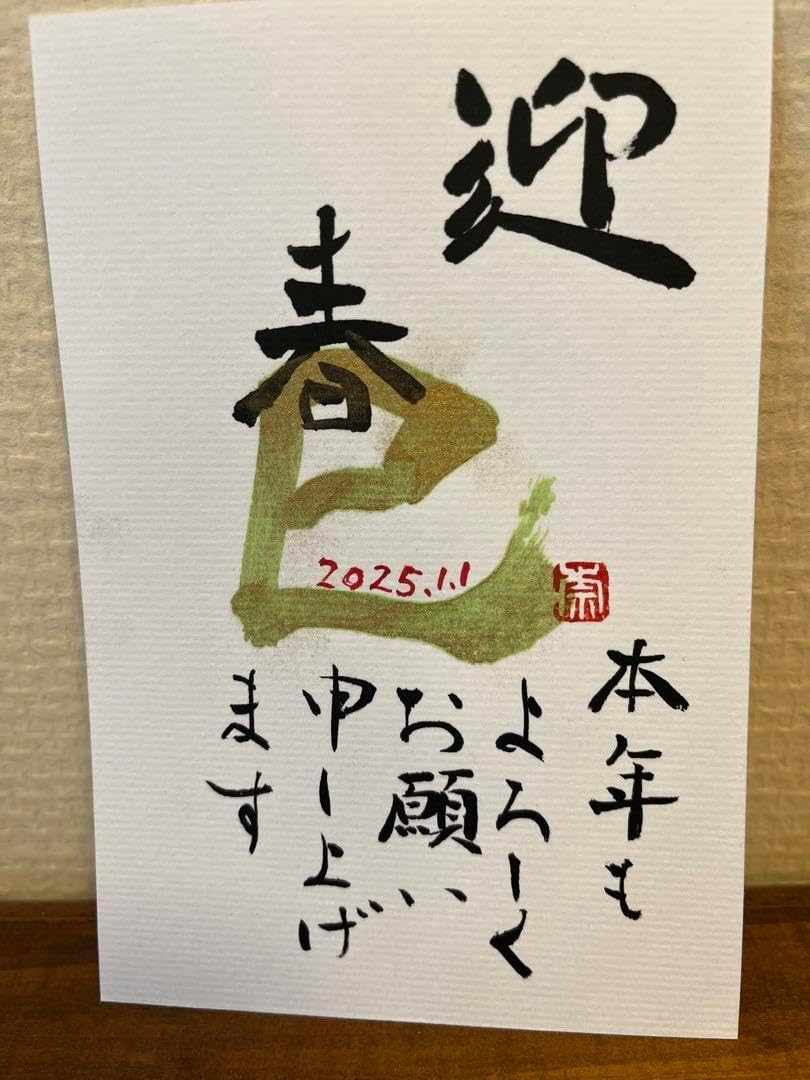 迎
春
巳
2025.1.1
本年も
よろしく
お願い
申し上げ
ます